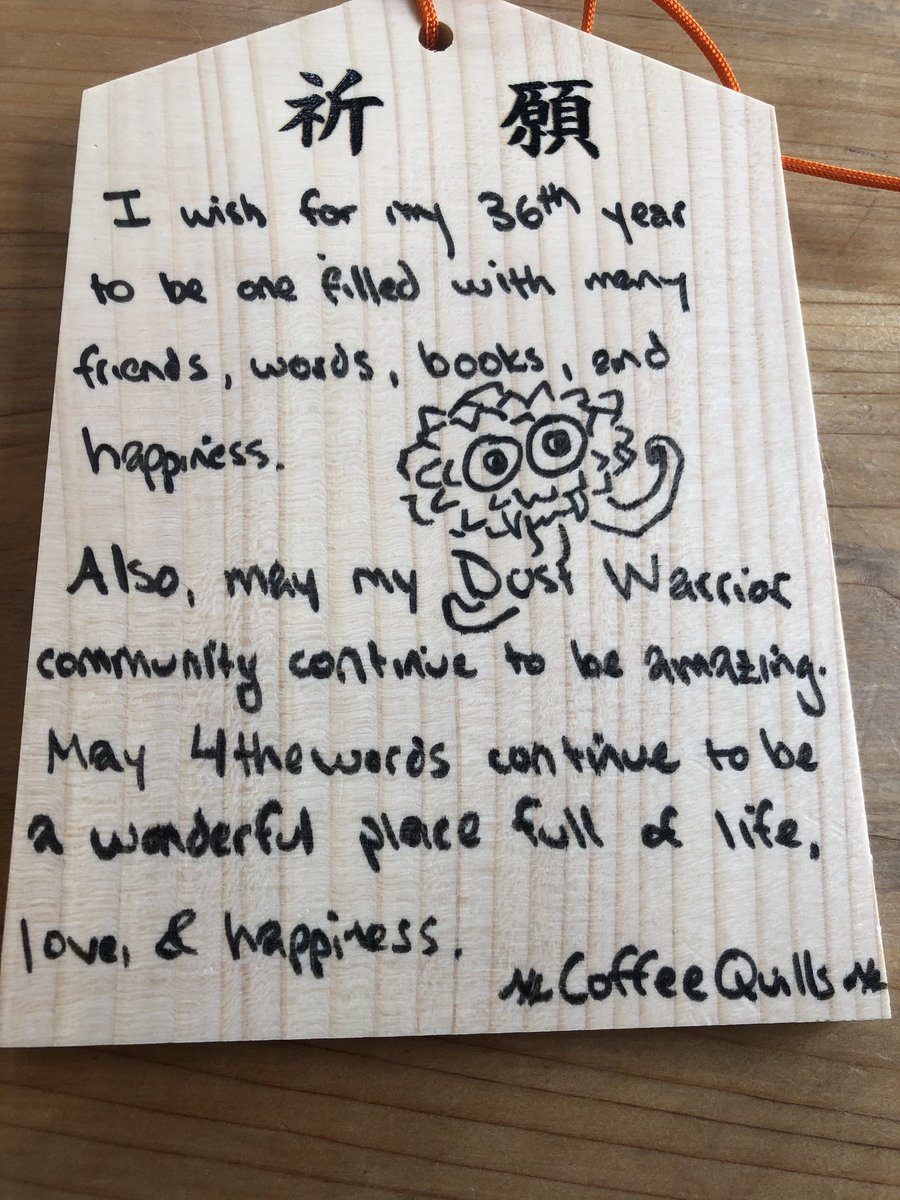 祈 願
I wish for my 36th year
to be one filled with many
friends, words, books, and
happiness.
Also, may my Dust Warrior
community continue to be amazing.
May 4thewords continue to be
a wonderful place full of life,
love, & happiness.
CoffeeQuills